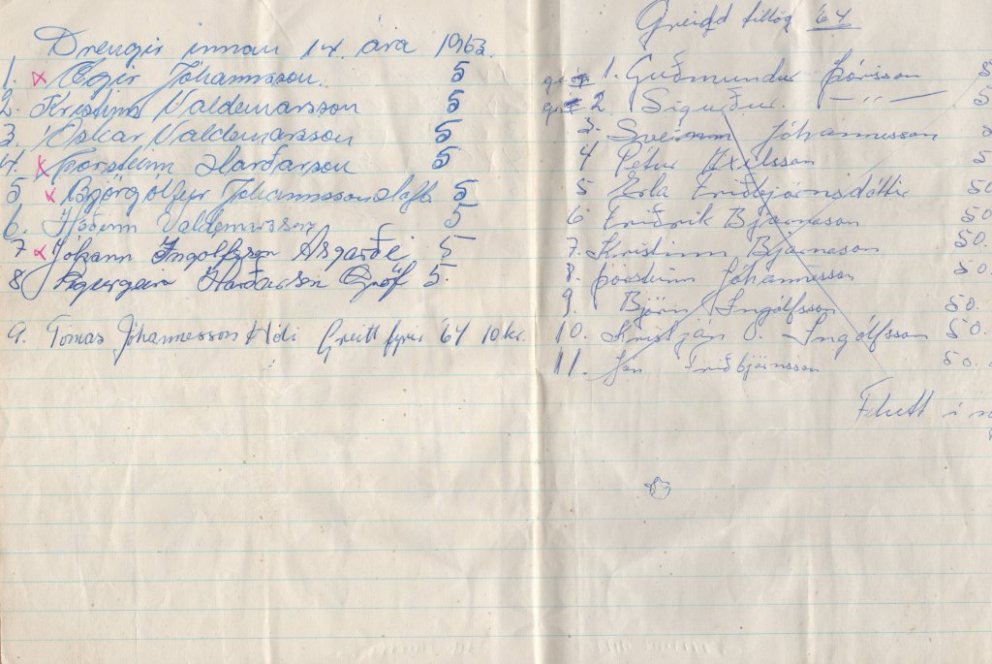 Drengir innan 14 ára 1963.
1. x Ægir Jóhannsson. 5
2. Kristinn Valdemarsson 5
3. Óskar Valdemarsson 5
4. x Þorsteinn Harðarson 5
5 x Björgólfur Jóhannsson 5
6. Valdemarsson 5
7 x Jóhann Ingólfsson Ásgarði 5
8 Sigurgeir Harðarson Gröf 5.
9. Tómas Jóhannesson Hóli Greitt fyrir '64 10 kr.
Greidd tillög '64
1. Guðmundur Þórisson 5
2 Sigurður. — " — 5
3. Sveinn Jóhannesson
4 Pétur Axelsson 5
5 Erla Friðbjörnsdóttir 50
6 Friðrik Bjarnason 50
7. Kristinn Bjarnason 50.
8. Þorsteinn Jóhannesson 50.
9. Björn Ingólfsson 50.
10. Kristján O. Ingólfsson 50.
11. Jón Friðbjörnsson 50.
Flutt í